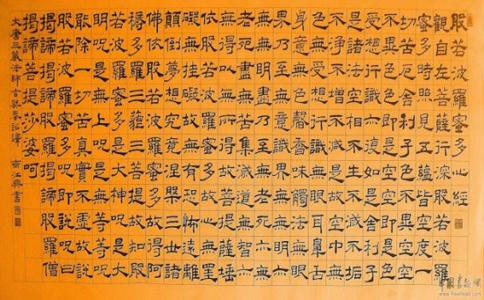 般若波羅蜜多心經
觀自在菩薩行深般若波羅
蜜多時照見五蘊皆空度一
切苦厄舍利子色不異空空
不異色色即是空空即是色
受想行識亦復如是舍利子
是諸法空相不生不滅不垢
不淨不增不減是故空中無
色無受想行識無眼耳鼻舌
身意無色聲香味觸法無眼
界乃至無意識界無無明亦
無無明盡乃至無老死亦無
老死盡無苦集滅道無智亦
無得以無所得故菩提薩埵
依般若波羅蜜多故心無罣
礙無罣礙故無有恐怖遠離
顛倒夢想究竟涅槃三世諸
佛依般若波羅蜜多故得阿
耨多羅三藐三菩提故知般
若波羅蜜多是大神呪是大
明呪是無上呪是無等等呪
能除一切苦真實不虛故說
般若波羅蜜多呪即說呪曰
揭諦揭諦波羅揭諦波羅僧
揭諦菩提娑婆呵
大唐三藏法師玄奘奉詔譯